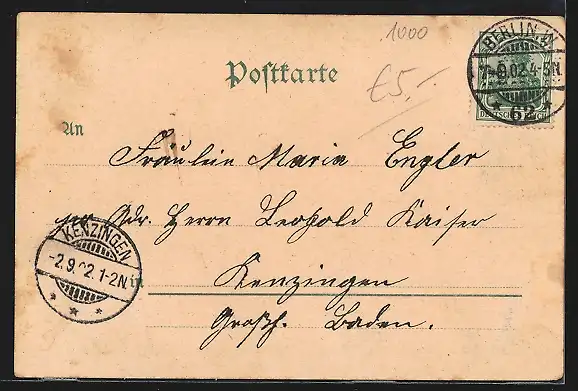 1000
BERLIN W
9.02.4-5N
* 62 *
Postkarte
£5,-
An
Fräulein Maria Engler
pr. Adr. Herrn Leopold Kaiser
KENZINGEN
-2.9.02.1-2N
in
Kenzingen
Grossh. Baden.